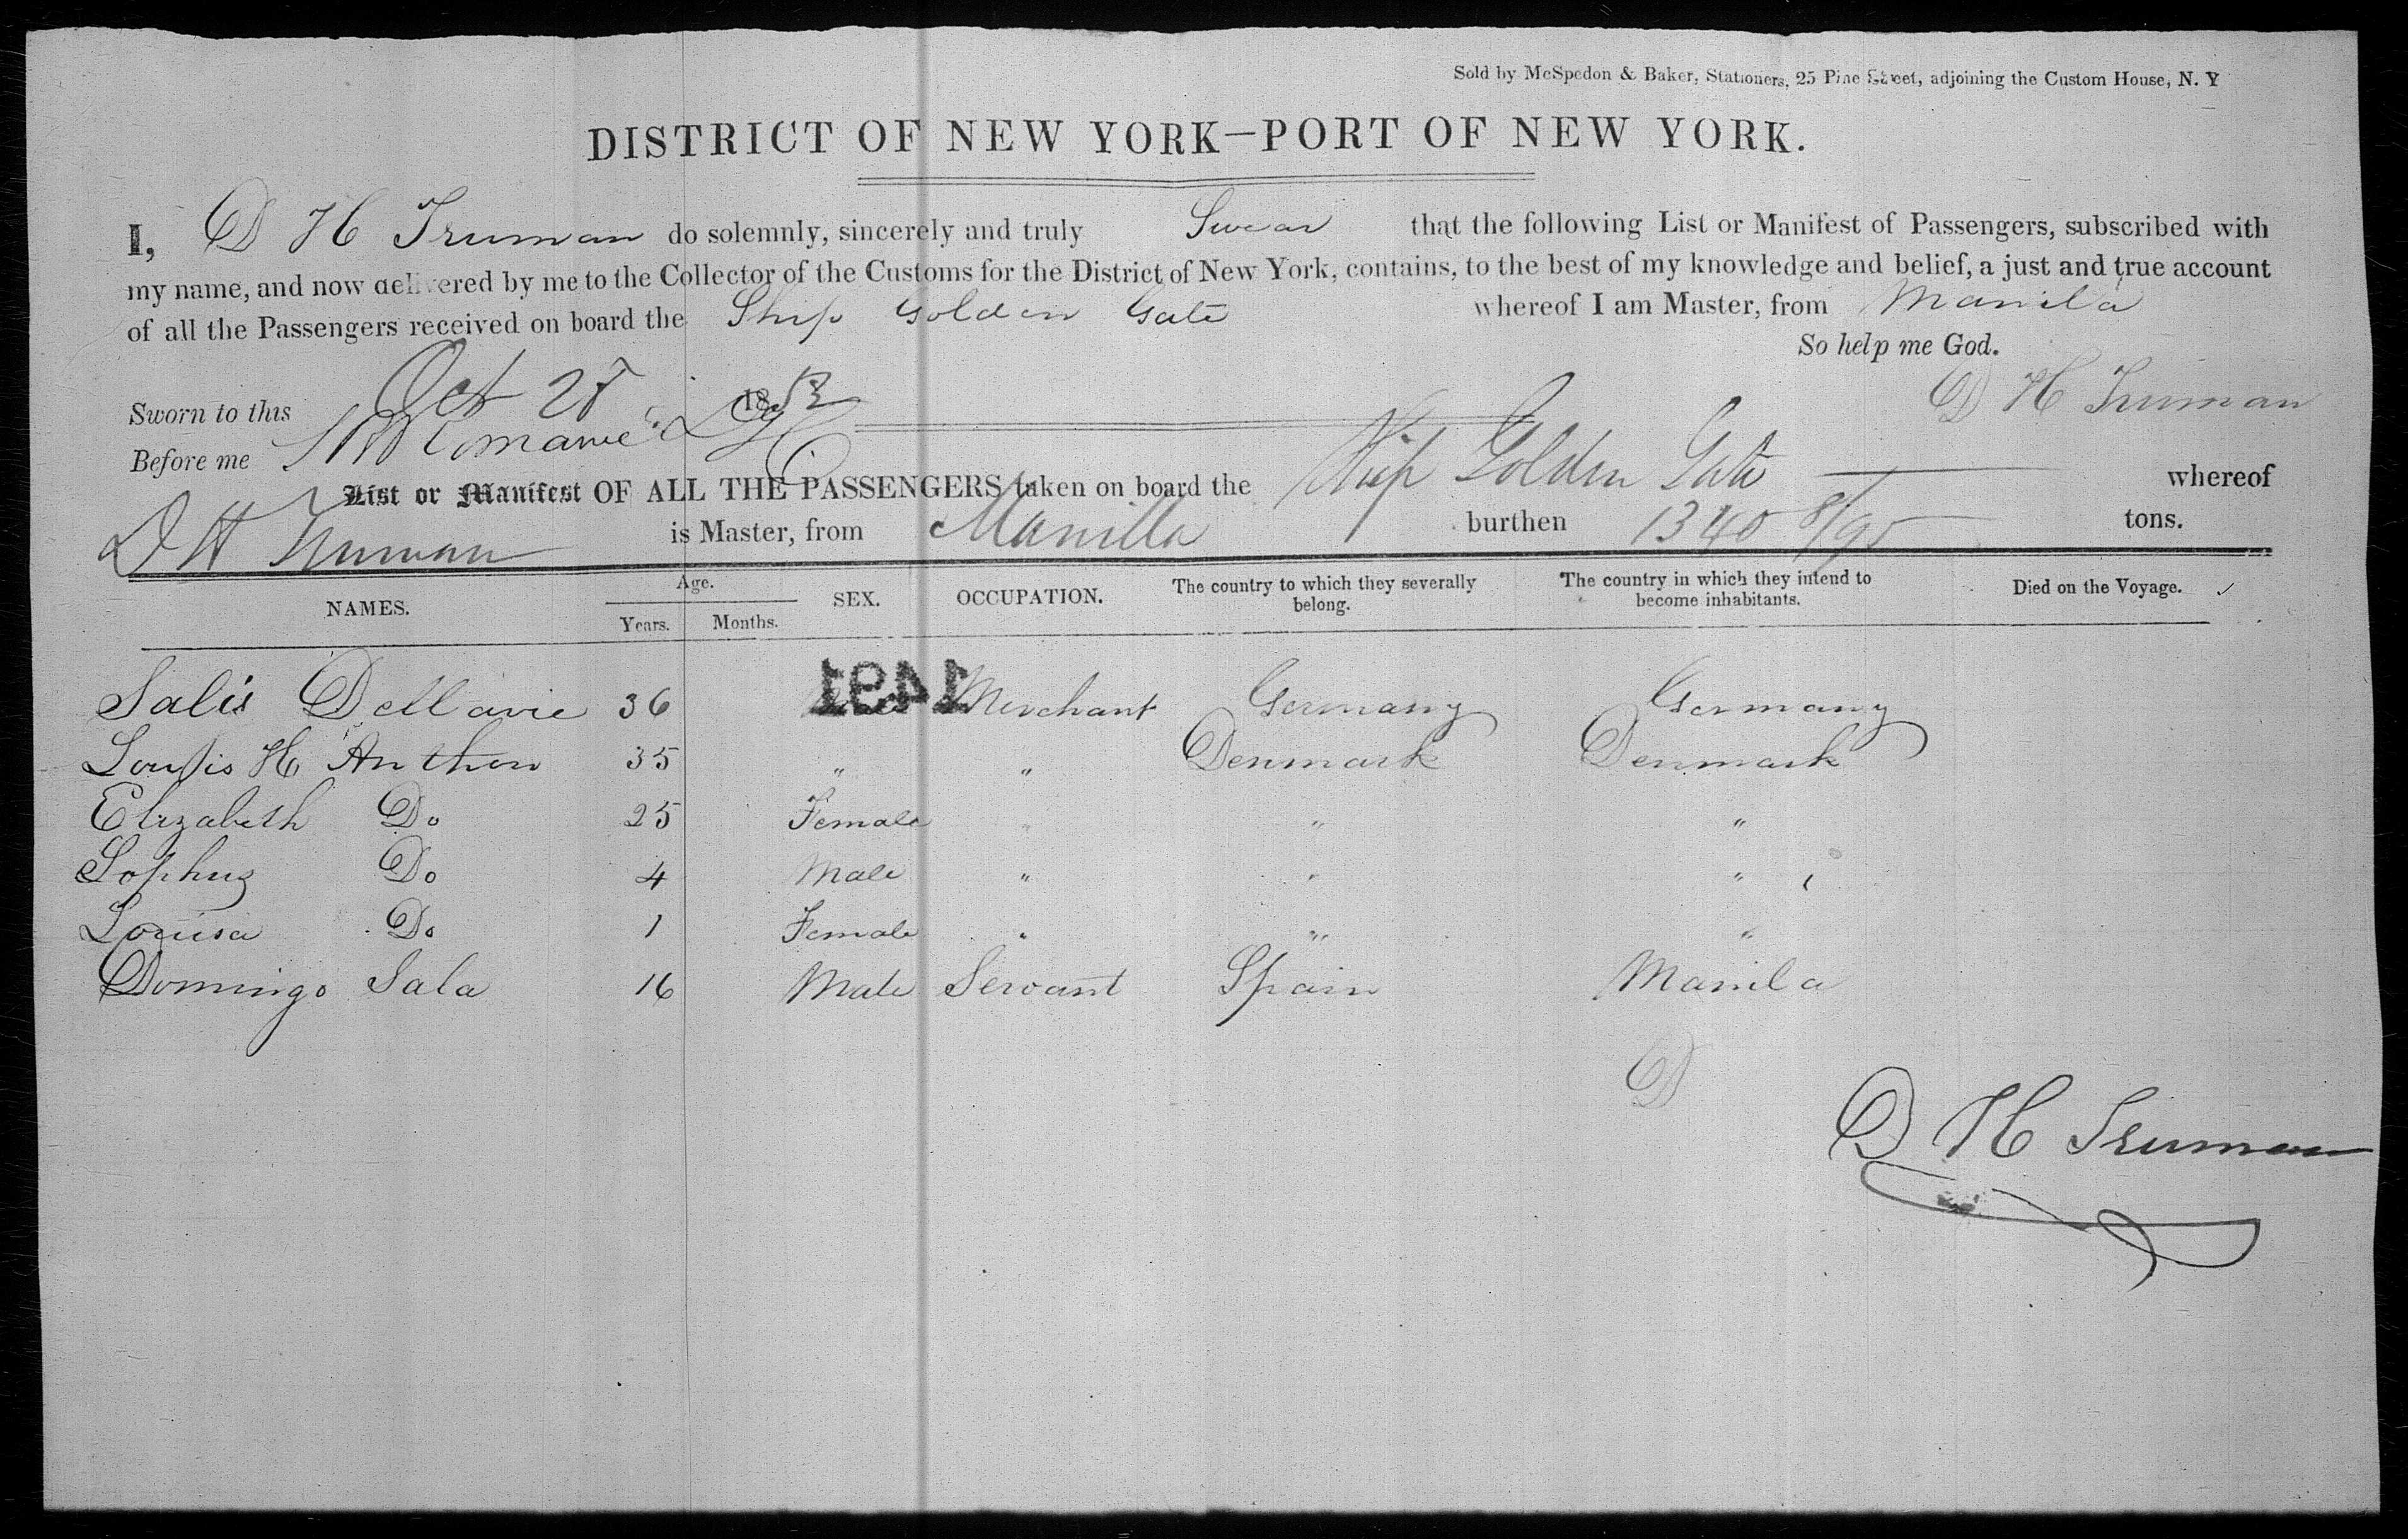 Sold by McSpedon & Baker, Stationers, 25 Pine Street, adjoining the Custom House, N. Y
DISTRICT OF NEW YORK—PORT OF NEW YORK.
I, D H Truman do solemnly, sincerely and truly Swear that the following List or Manifest of Passengers, subscribed with
my name, and now delivered by me to the Collector of the Customs for the District of New York, contains, to the best of my knowledge and belief, a just and true account
of all the Passengers received on board the Ship Golden Gate whereof I am Master, from Manila
So help me God.
Sworn to this Oct 28 1853 D H Truman
Before me
List or Manifest OF ALL THE PASSENGERS taken on board the Ship Golden Gate whereof
D H Truman is Master, from Manilla burthen 1340 8/95 tons.
NAMES. Age. Years. Months. SEX. OCCUPATION. The country to which they severally belong. The country in which they intend to become inhabitants. Died on the Voyage.
1491
Salis Dellavie 36 Merchant Germany Germany
Loufis H Anthon 35 " " Denmark Denmark
Elizabeth Do 25 Female " " "
Sophus Do 4 Male " " "
Louisa Do 1 Female " " "
Domingo Sala 16 Male Servant Spain Manila
D
D H Truman